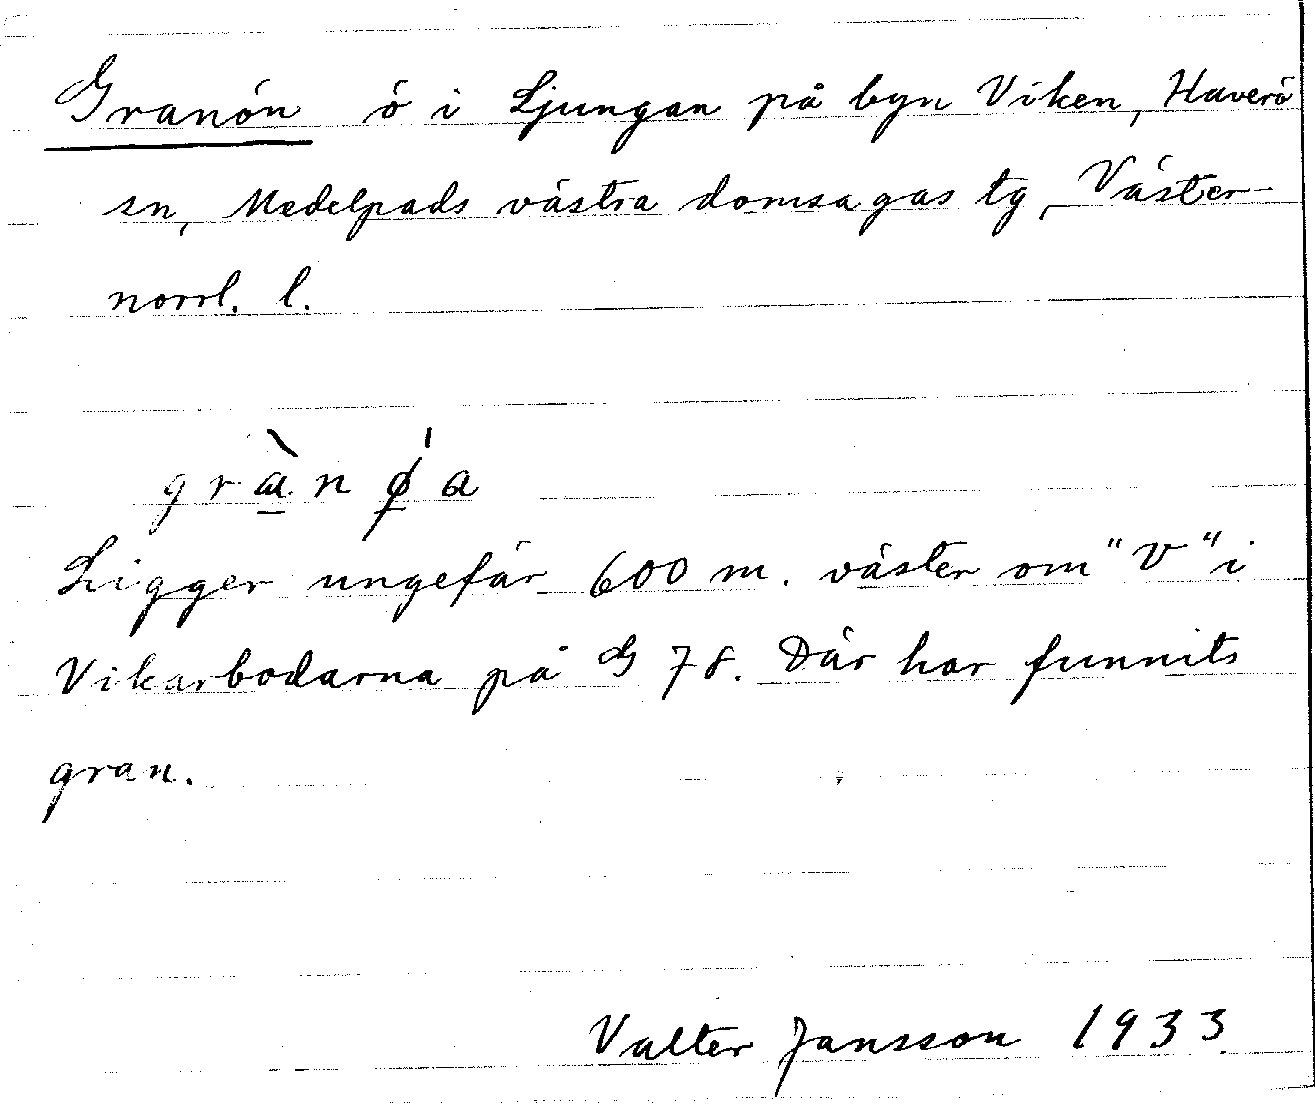 Granön ö i Ljungan på byn Viken, Haverö
sn, Medelpads västra domsagas tg, Väster-
norrl. l.
grà̱nǿ̱a
Ligger ungefär 600 m. väster om "V" i
Vikarbodarna på G 78. Där har funnits
gran.
Valter Jansson 1933.